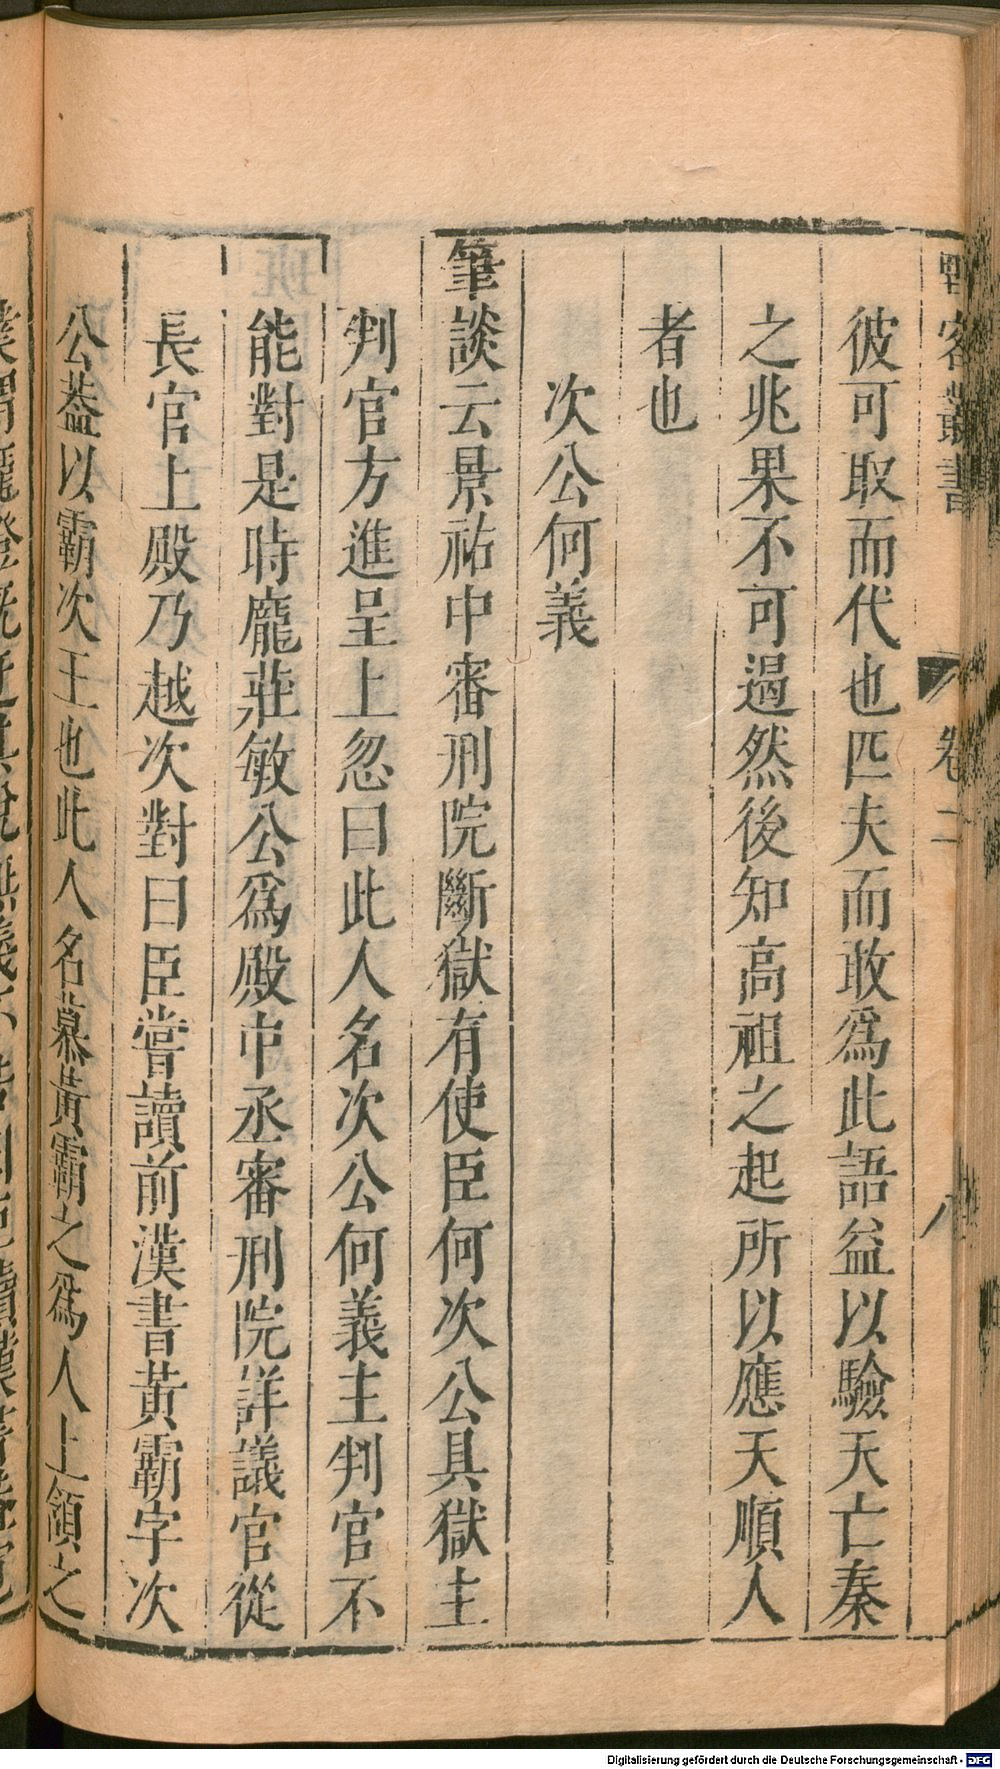 客叢書 卷二 八
彼可取而代也匹夫而敢爲此語益以驗天亡秦
之兆果不可遏然後知高祖之起所以應天順人
者也
次公何義
筆談云景祐中審刑院斷獄有使臣何次公具獄主
判官方進呈上忽曰此人名次公何義主判官不
能對是時龐莊敏公爲殿中丞審刑院詳議官從
長官上殿乃越次對曰臣嘗讀前漢書黃霸字次
公葢以霸次王也此人名慕黃霸之爲人上頷之
Digitalisierung gefördert durch die Deutsche Forschungsgemeinschaft - DFG